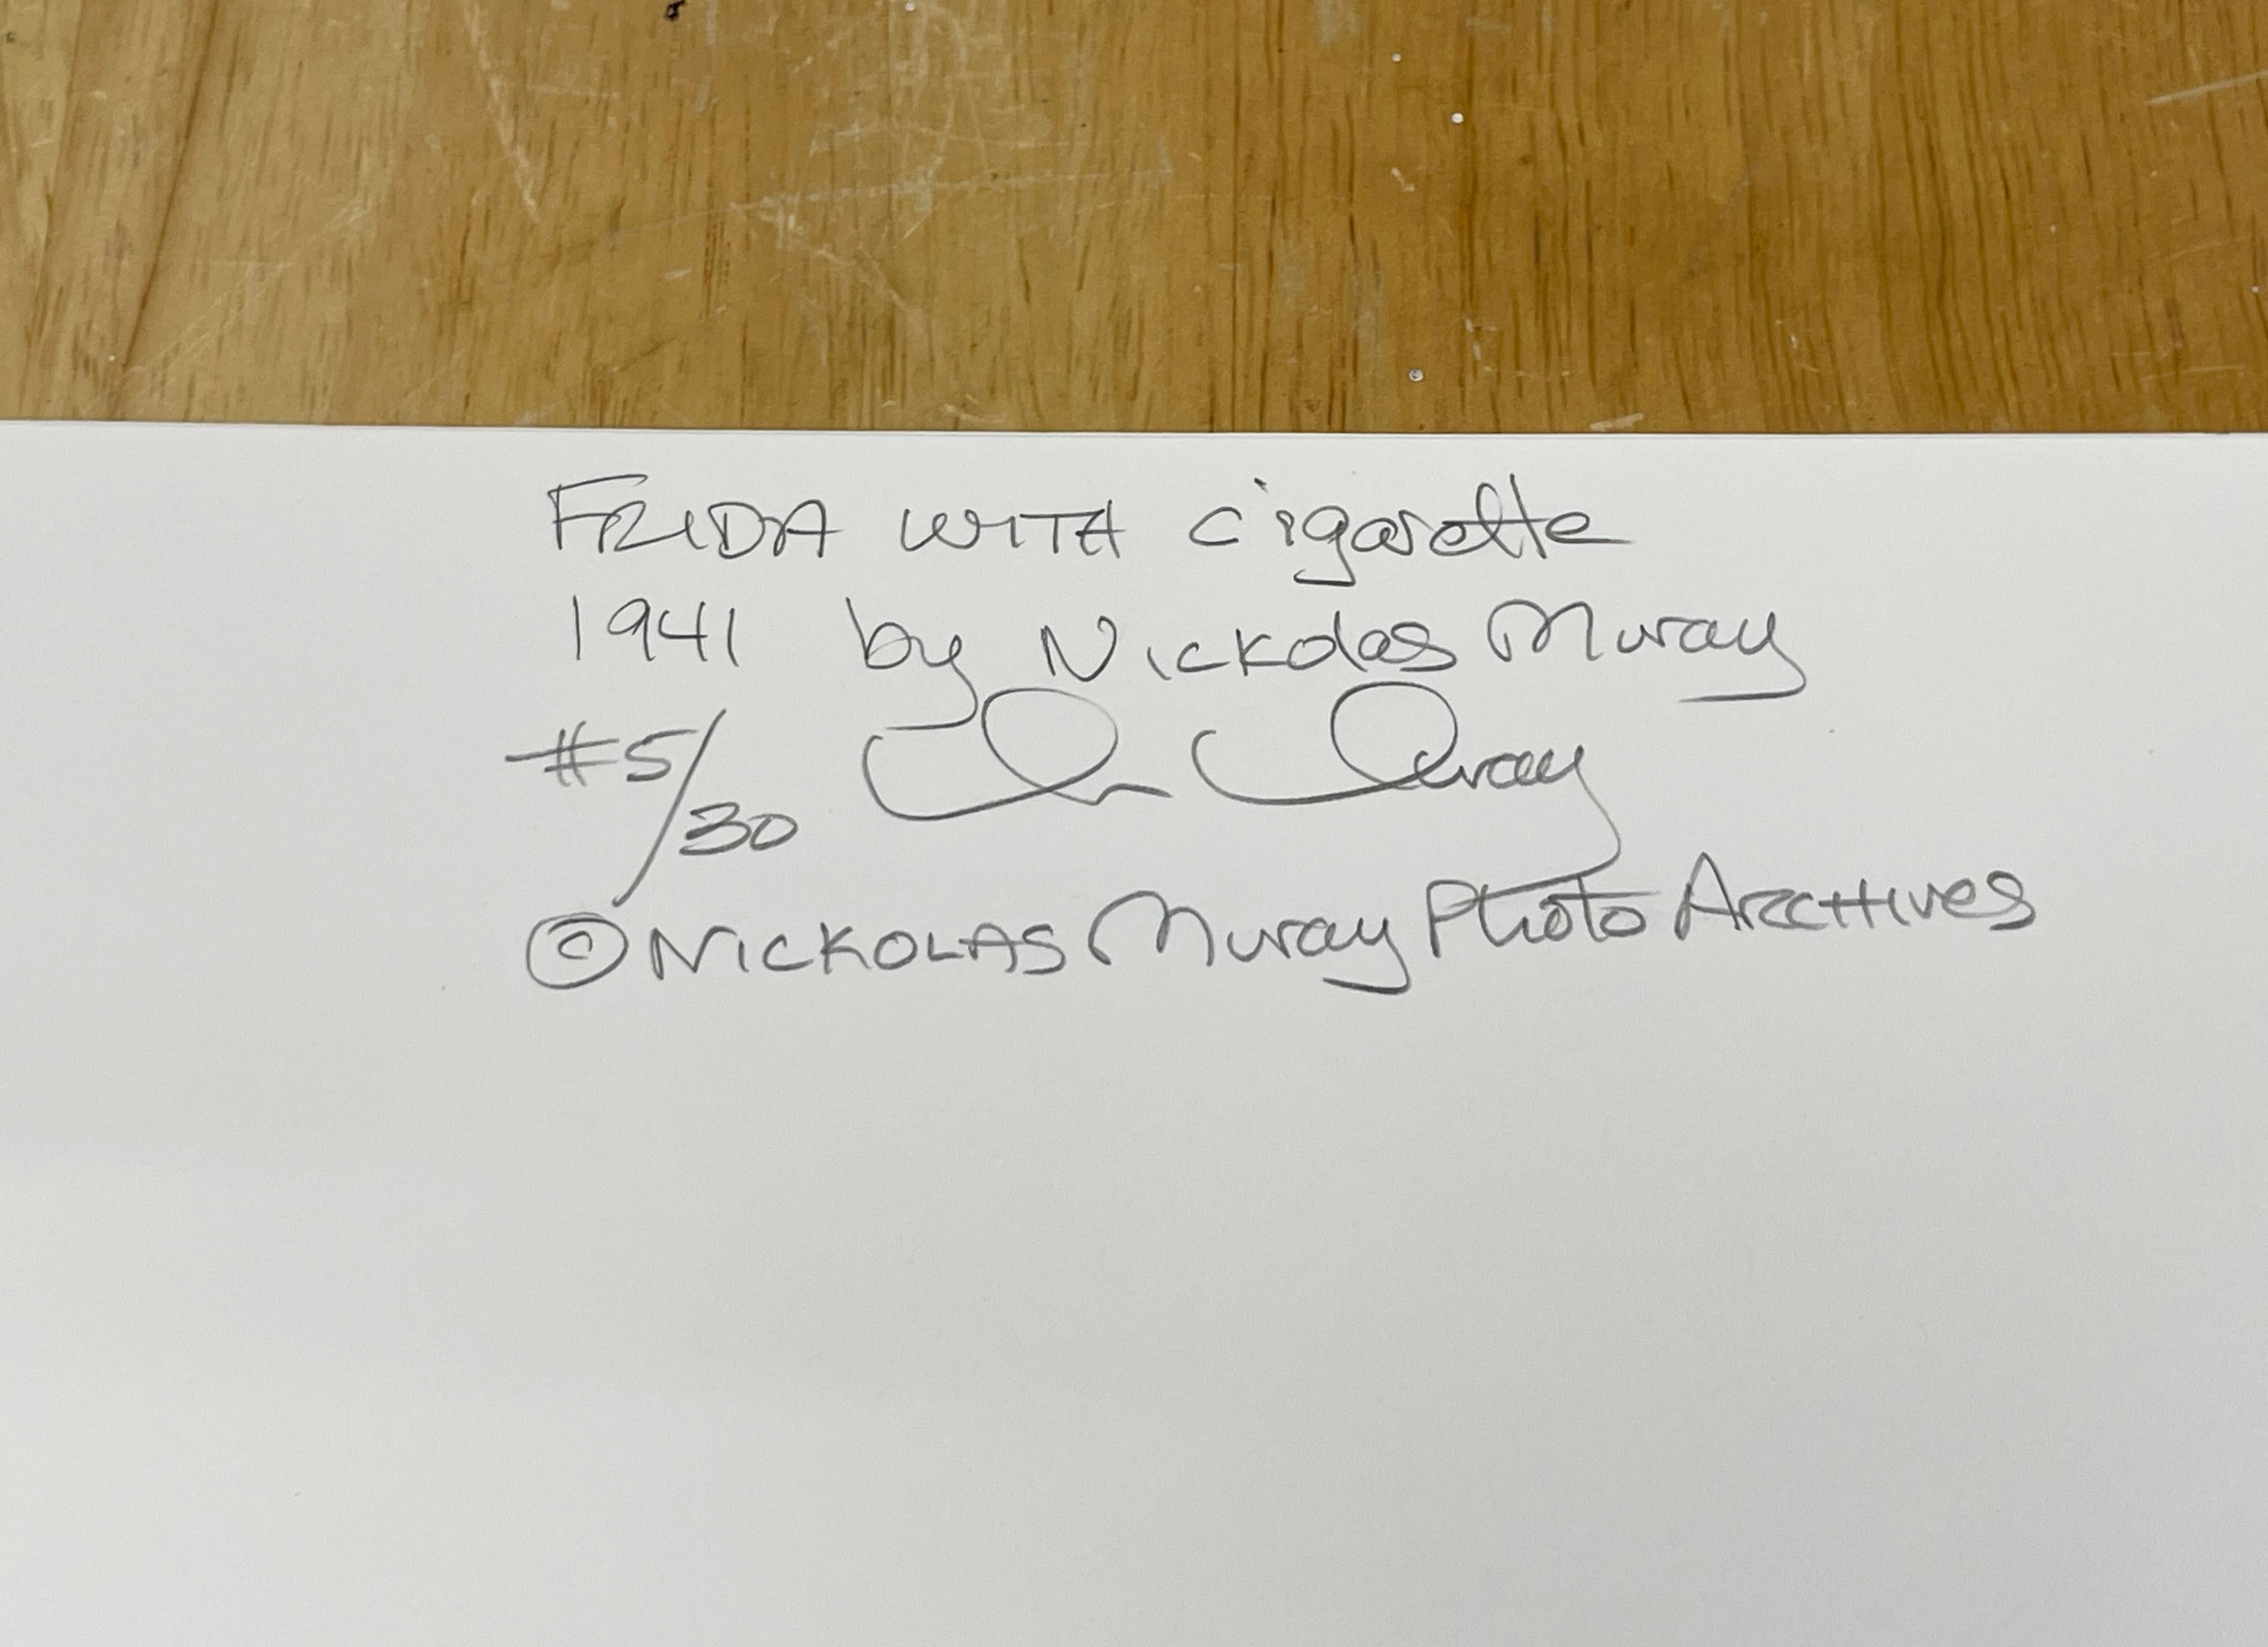 FRIDA WITH cigarette
1941 by Nickolas Muray
#5/30 Muray
©NICKOLAS Muray Photo ARCHIVES